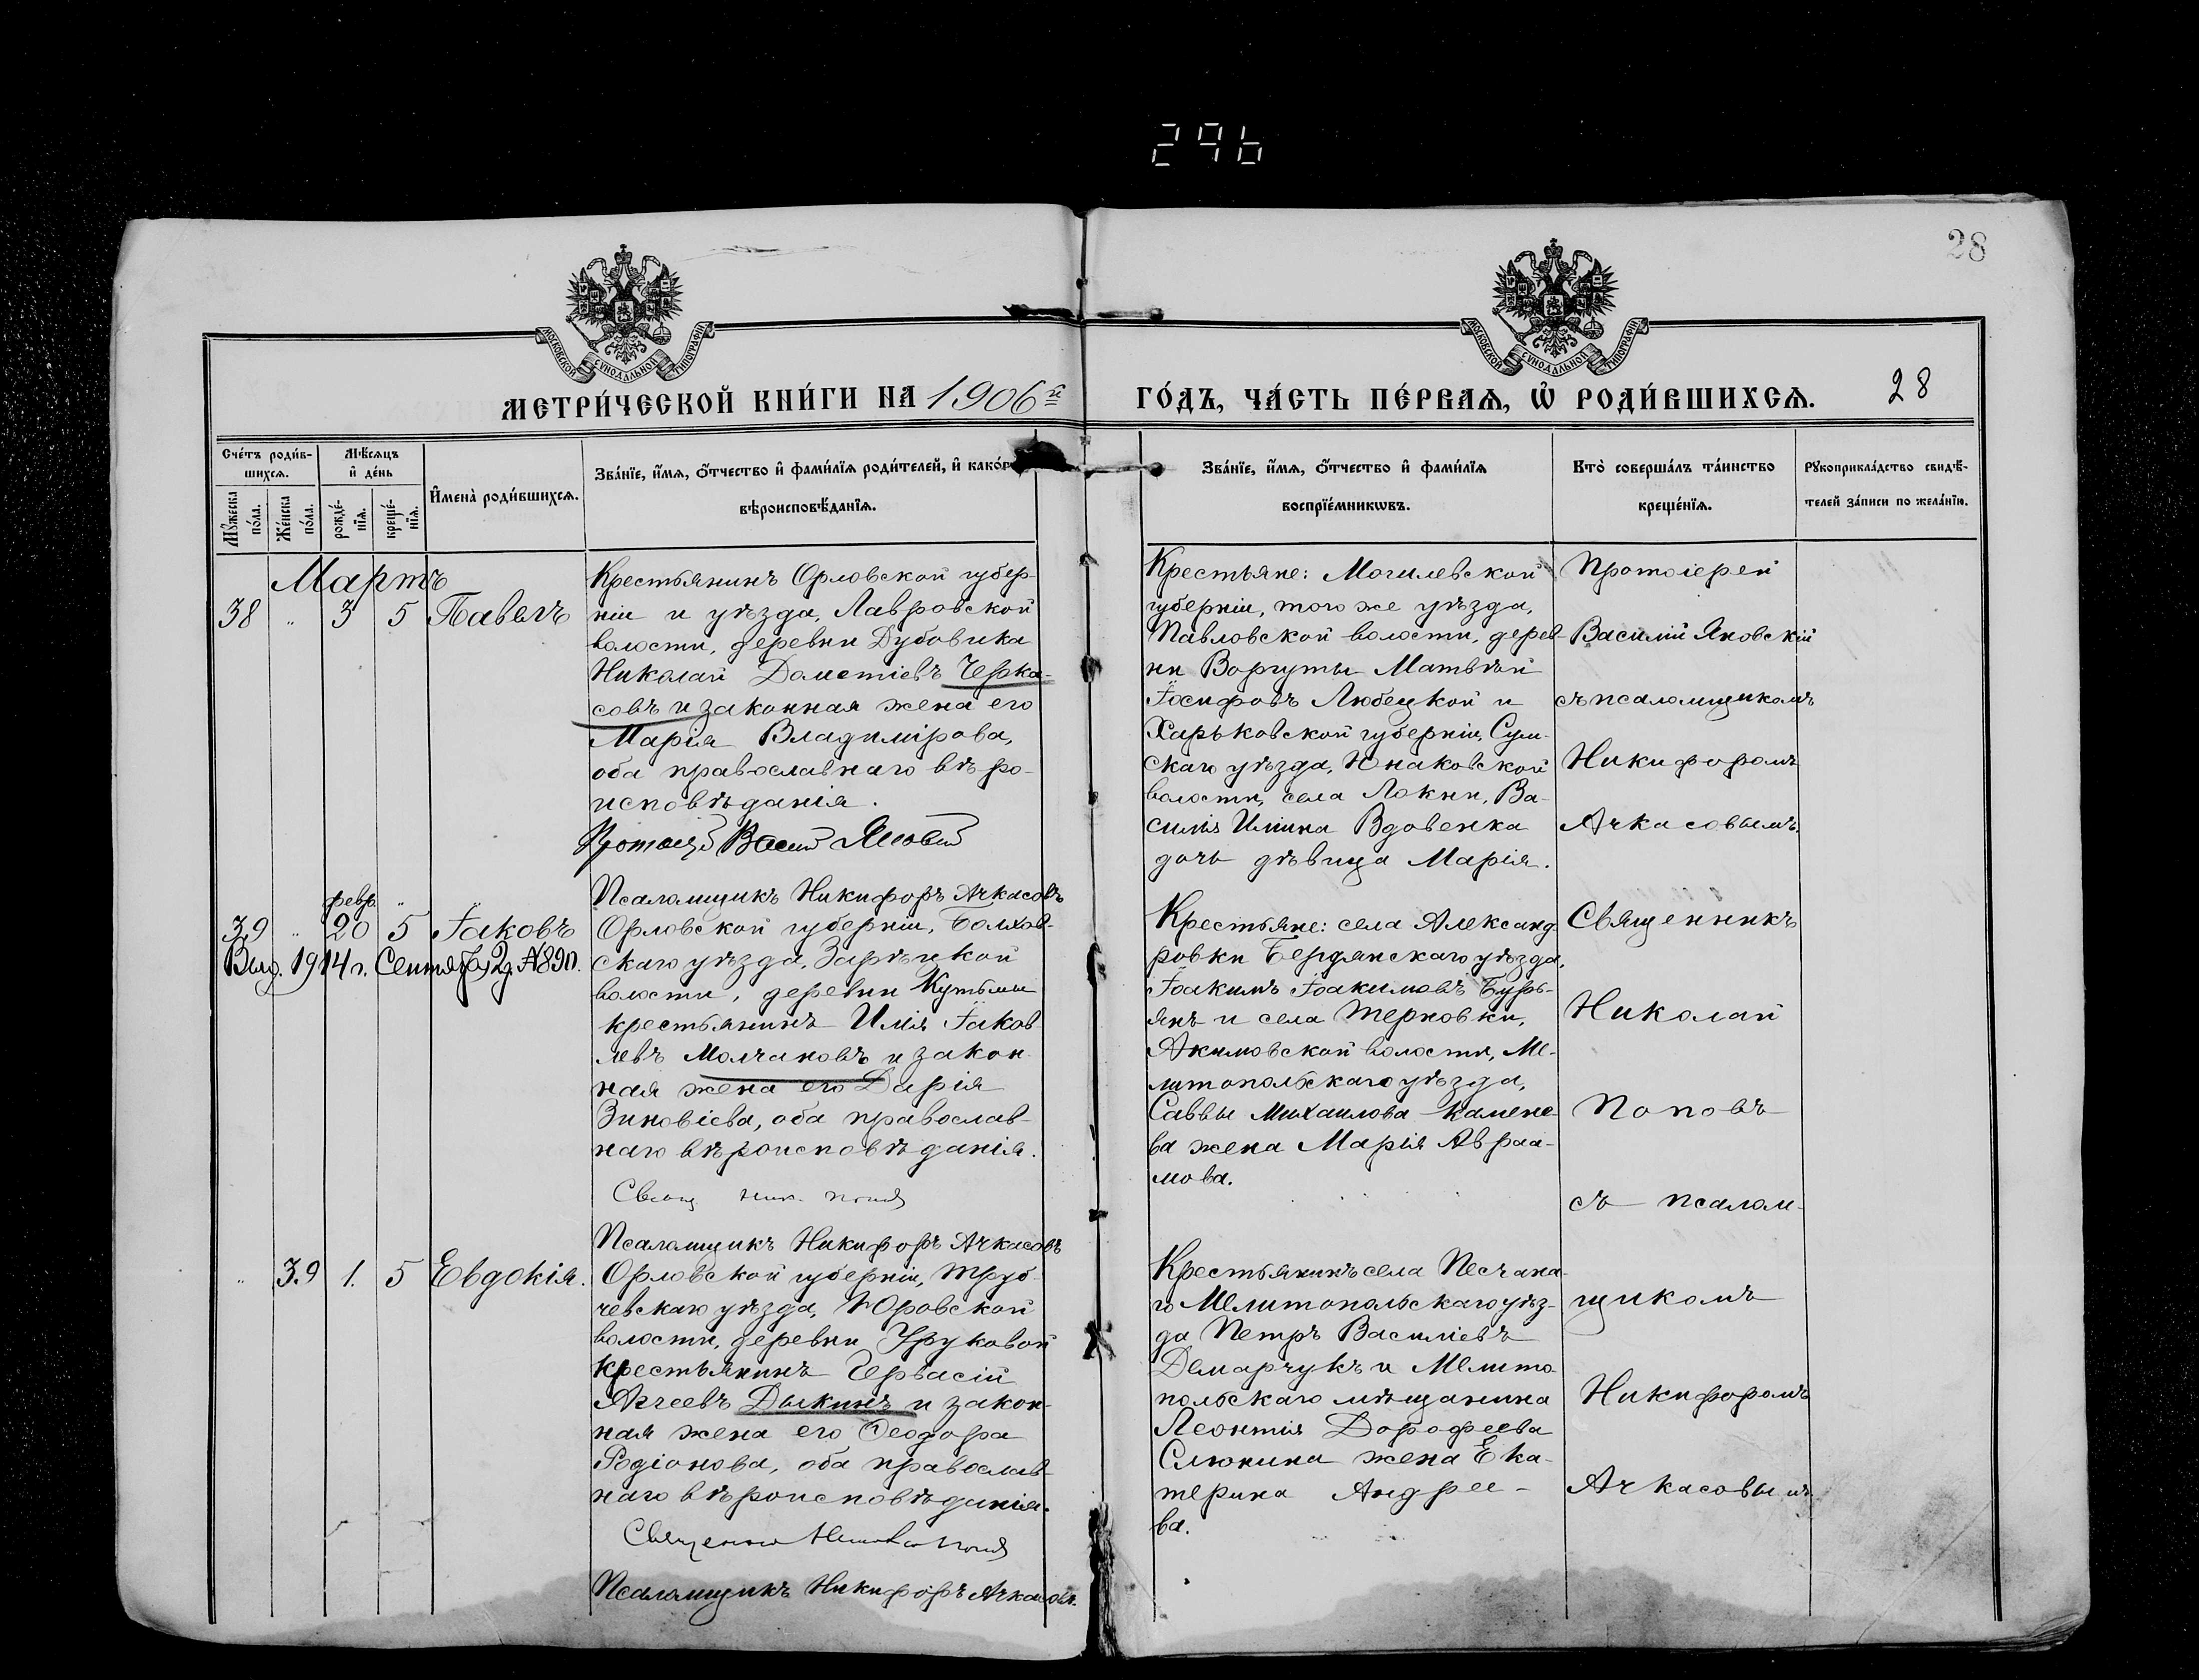 296
28
МОСКОВСКОЙ СѴНОДАЛЬНОЙ ТИПОГРАФІИ
МОСКОВСКОЙ СѴНОДАЛЬНОЙ ТИПОГРАФІИ
МЕТРИ́ЧЕСКОЙ КНИ́ГИ НА 1906й ГО́ДЪ, ЧА́СТЬ ПЕ́РВАѦ, Ѡ҆ РОДИ́ВШИХСѦ. 28
Сче́тъ роди́в-
шихсѧ.
Мꙋ́жеска по́ла.
Же́нска по́ла.
Мѣ́сѧцъ
и҆ де́нь
рожде́-
нїѧ.
креще́-
нїѧ.
И҆мена̀ роди́вшихсѧ.
Зва́нїе, и҆́мѧ, ѻ҆́тчество и҆ фами́лїѧ роди́телей, и҆ како́
вѣроисповѣ́данїѧ.
Зва́нїе, и҆́мѧ, ѻ҆́тчество и҆ фами́лїѧ
воспрїе́мникѡвъ.
Кто̀ соверша́лъ та́инство
креще́нїѧ.
Рꙋкоприкла́дство свидѣ́-
телей за́писи по жела́нїю.
Мартъ
38 " 3 5 Павелъ
Крестьянинъ Орловской губер-
ніи и уѣзда, Лавровской
волости, деревни Дубовика
Николай Дометіевъ Черка-
совъ и законная жена его
Марія Владимірова,
оба православнаго вѣро-
исповѣданія.
Протоіер Васил Яновскій
Псаломщикъ Никифоръ Ачкасовъ
Крестьяне: Могилевской
губерніи, того же уѣзда,
Павловской волости, дерев-
ни Воргуты Матвѣй
Іосифовъ Любецкой и
Харьковской губерніи, Сум-
скаго уѣзда, Юнаковской
волости, села Локни, Ва-
силія Иліина Вдовенка
дочь дѣвица Марія.
Протоіерей
Василій Яновскій
съ псаломщикомъ
Никифоромъ
Ачкасовымъ.
февр. "
39 " 20 5 Іаковъ
Выд. 1914 г. Сентября 2д. №890.
Орловской губерніи, Болхов-
скаго уѣзда, Зарѣцкой
волости, деревни Кутьмы
крестьянинъ Илія Іаков-
левъ Молчановъ и закон-
ная жена его Дарія
Зиновіева, оба православ-
наго вѣроисповѣданія.
Свящ Ник. Попов
Псаломщикъ Никифоръ Ачкасовъ
Крестьяне: села Александ-
ровки Бердянскаго уѣзда,
Іоакимъ Іоакимовъ Бурь-
янъ и села Терновки,
Акимовской волости, Ме-
литопольскаго уѣзда,
Саввы Михаилова Камене-
ва жена Марія Авраа-
мова.
Священникъ
Николай
Поповъ
съ псалом-
щикомъ
Никифоромъ
Ачкасовымъ
" 39 1. 5 Евдокія.
Орловской губерніи, Труб-
чевскаго уѣзда, Юровской
волости, деревни Уруковой
крестьянинъ Гервасій
Аггеевъ Дыкинъ и закон-
ная жена его Ѳеодора
Родіонова, оба православ-
наго вѣроисповѣданія.
Священник Николай Попов
Псаломщикъ Никифоръ Ачкасовъ.
Крестьянинъ села Песчана-
го Мелитопольскаго уѣз-
да Петръ Василіевъ
Демарчукъ и Мелито-
польскаго мѣщанина
Леонтія Дорофеева
Слюнина жена Ека-
терина Андрее-
ва.